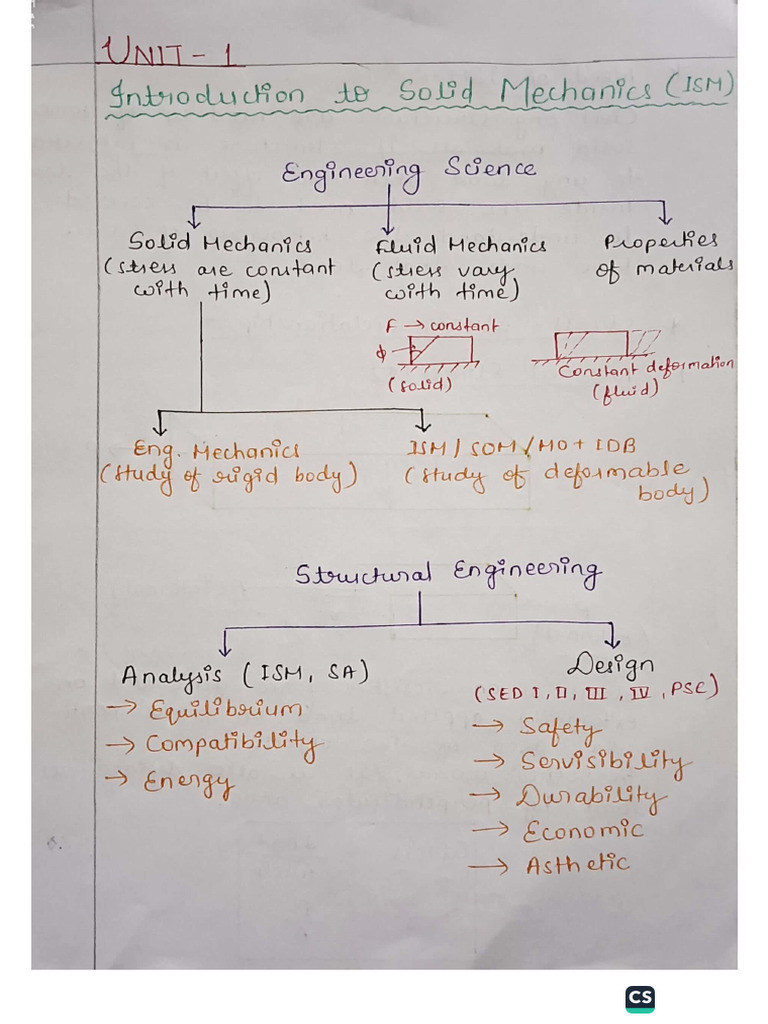 UNIT-1
Introduction to Solid Mechanics (ISM)
Engineering Science
Solid Mechanics
(stress are constant
with time)
Fluid Mechanics
(stress vary
with time)
Properties
of materials
F → constant
ϕ
(solid)
Constant deformation
(fluid)
Eng. Mechanics
(study of rigid body)
ISM / SOM / MO + IDB
(study of deformable
body)
Structural Engineering
Analysis (ISM, SA)
→ Equilibrium
→ Compatibility
→ Energy
Design
(SED I, II, III, IV, PSC)
→ Safety
→ Servisibility
→ Durability
→ Economic
→ Asthetic
CS